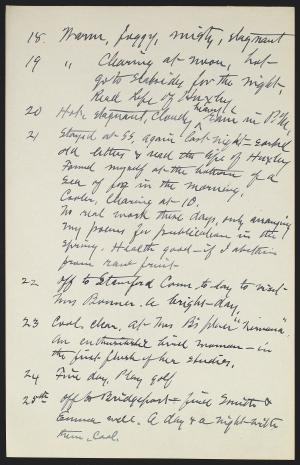 18. Warm, foggy, misty, stagnant
19 " Clearing at noon, hot
go to Slabsides for the night,
Read life of Huxley
20 Hot, stagnant, cloudy, rain in P.M.,
21 Stayed at SS. again last night -
old letters & read the life of Huxley
Found myself at the bottom of a
sea of fog in the morning.
Cooler, clearing at 10.
No real work these days, only arranging
my poems for publication in the
Spring. Health good - if I abstain
from raw fruit -
22 off to Stamford Conn. to-day to visit
Mrs Bonner. A bright day.
23 Cool, clear. at Mrs
An enthusiastic bird woman - in
the first flush of her studies.
24 Fine day, Play golf
25th off to Bridgeport - find Smith &
Emma well. A day & a night with
them, Cool.